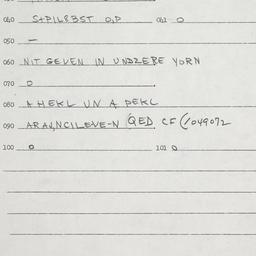 040 S+PIL83ST O,P 041 O
050 —
060 NIT GEVEN IN UNDZERE YORN
070 O
080 A HEKL UN A PEKL
090 ARAJ,NCILEVE-N (QED CF (1049072
100 O 101 O